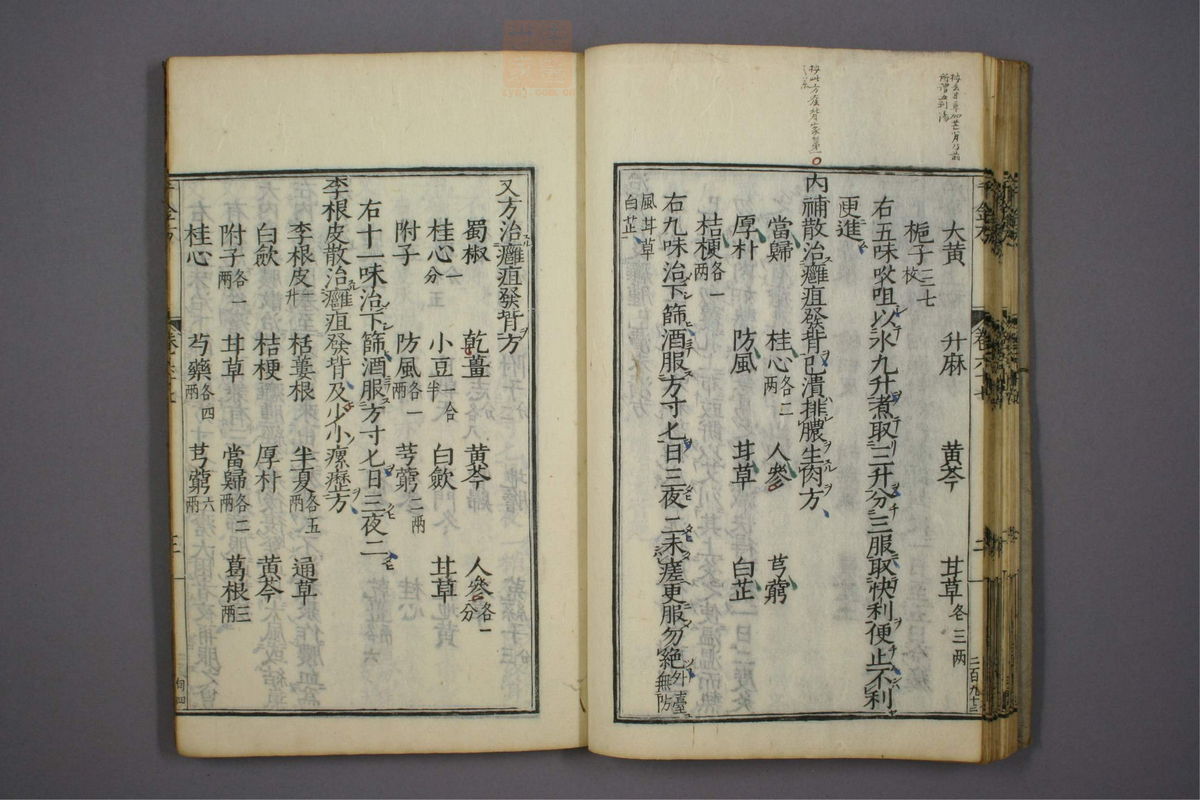 大黄 升麻 黄芩 甘草各三两
梔子三七枚
右五味㕮咀以水九升煮取三升分三服取快利便止不利
更進
内補散治癰疽發背已潰排膿生肉方
當歸 桂心各二两 人參 芎藭
厚朴 防風 甘草 白芷
桔梗各一两
右九味治下篩酒服方寸匕日三夜二未瘥更服勿絶外臺無防
風甘草白芷
又方治癰疽發背方
蜀椒 乾薑 黄芩 人參各一分
桂心一分 小豆一合半 白斂 甘草
附子 防風各一两 芎藭二两
右十一味治下篩酒服方寸匕日三夜二
李根皮散治癰疽發背及小小瘰癧方
李根皮一升 栝蔞根 半夏各五两 通草
白斂 桔梗 厚朴 黄芩
附子各一两 甘草 當歸各二两 葛根三两
桂心 芍藥各四两 芎藭六两
千金方
卷六十七
三
二百九十三